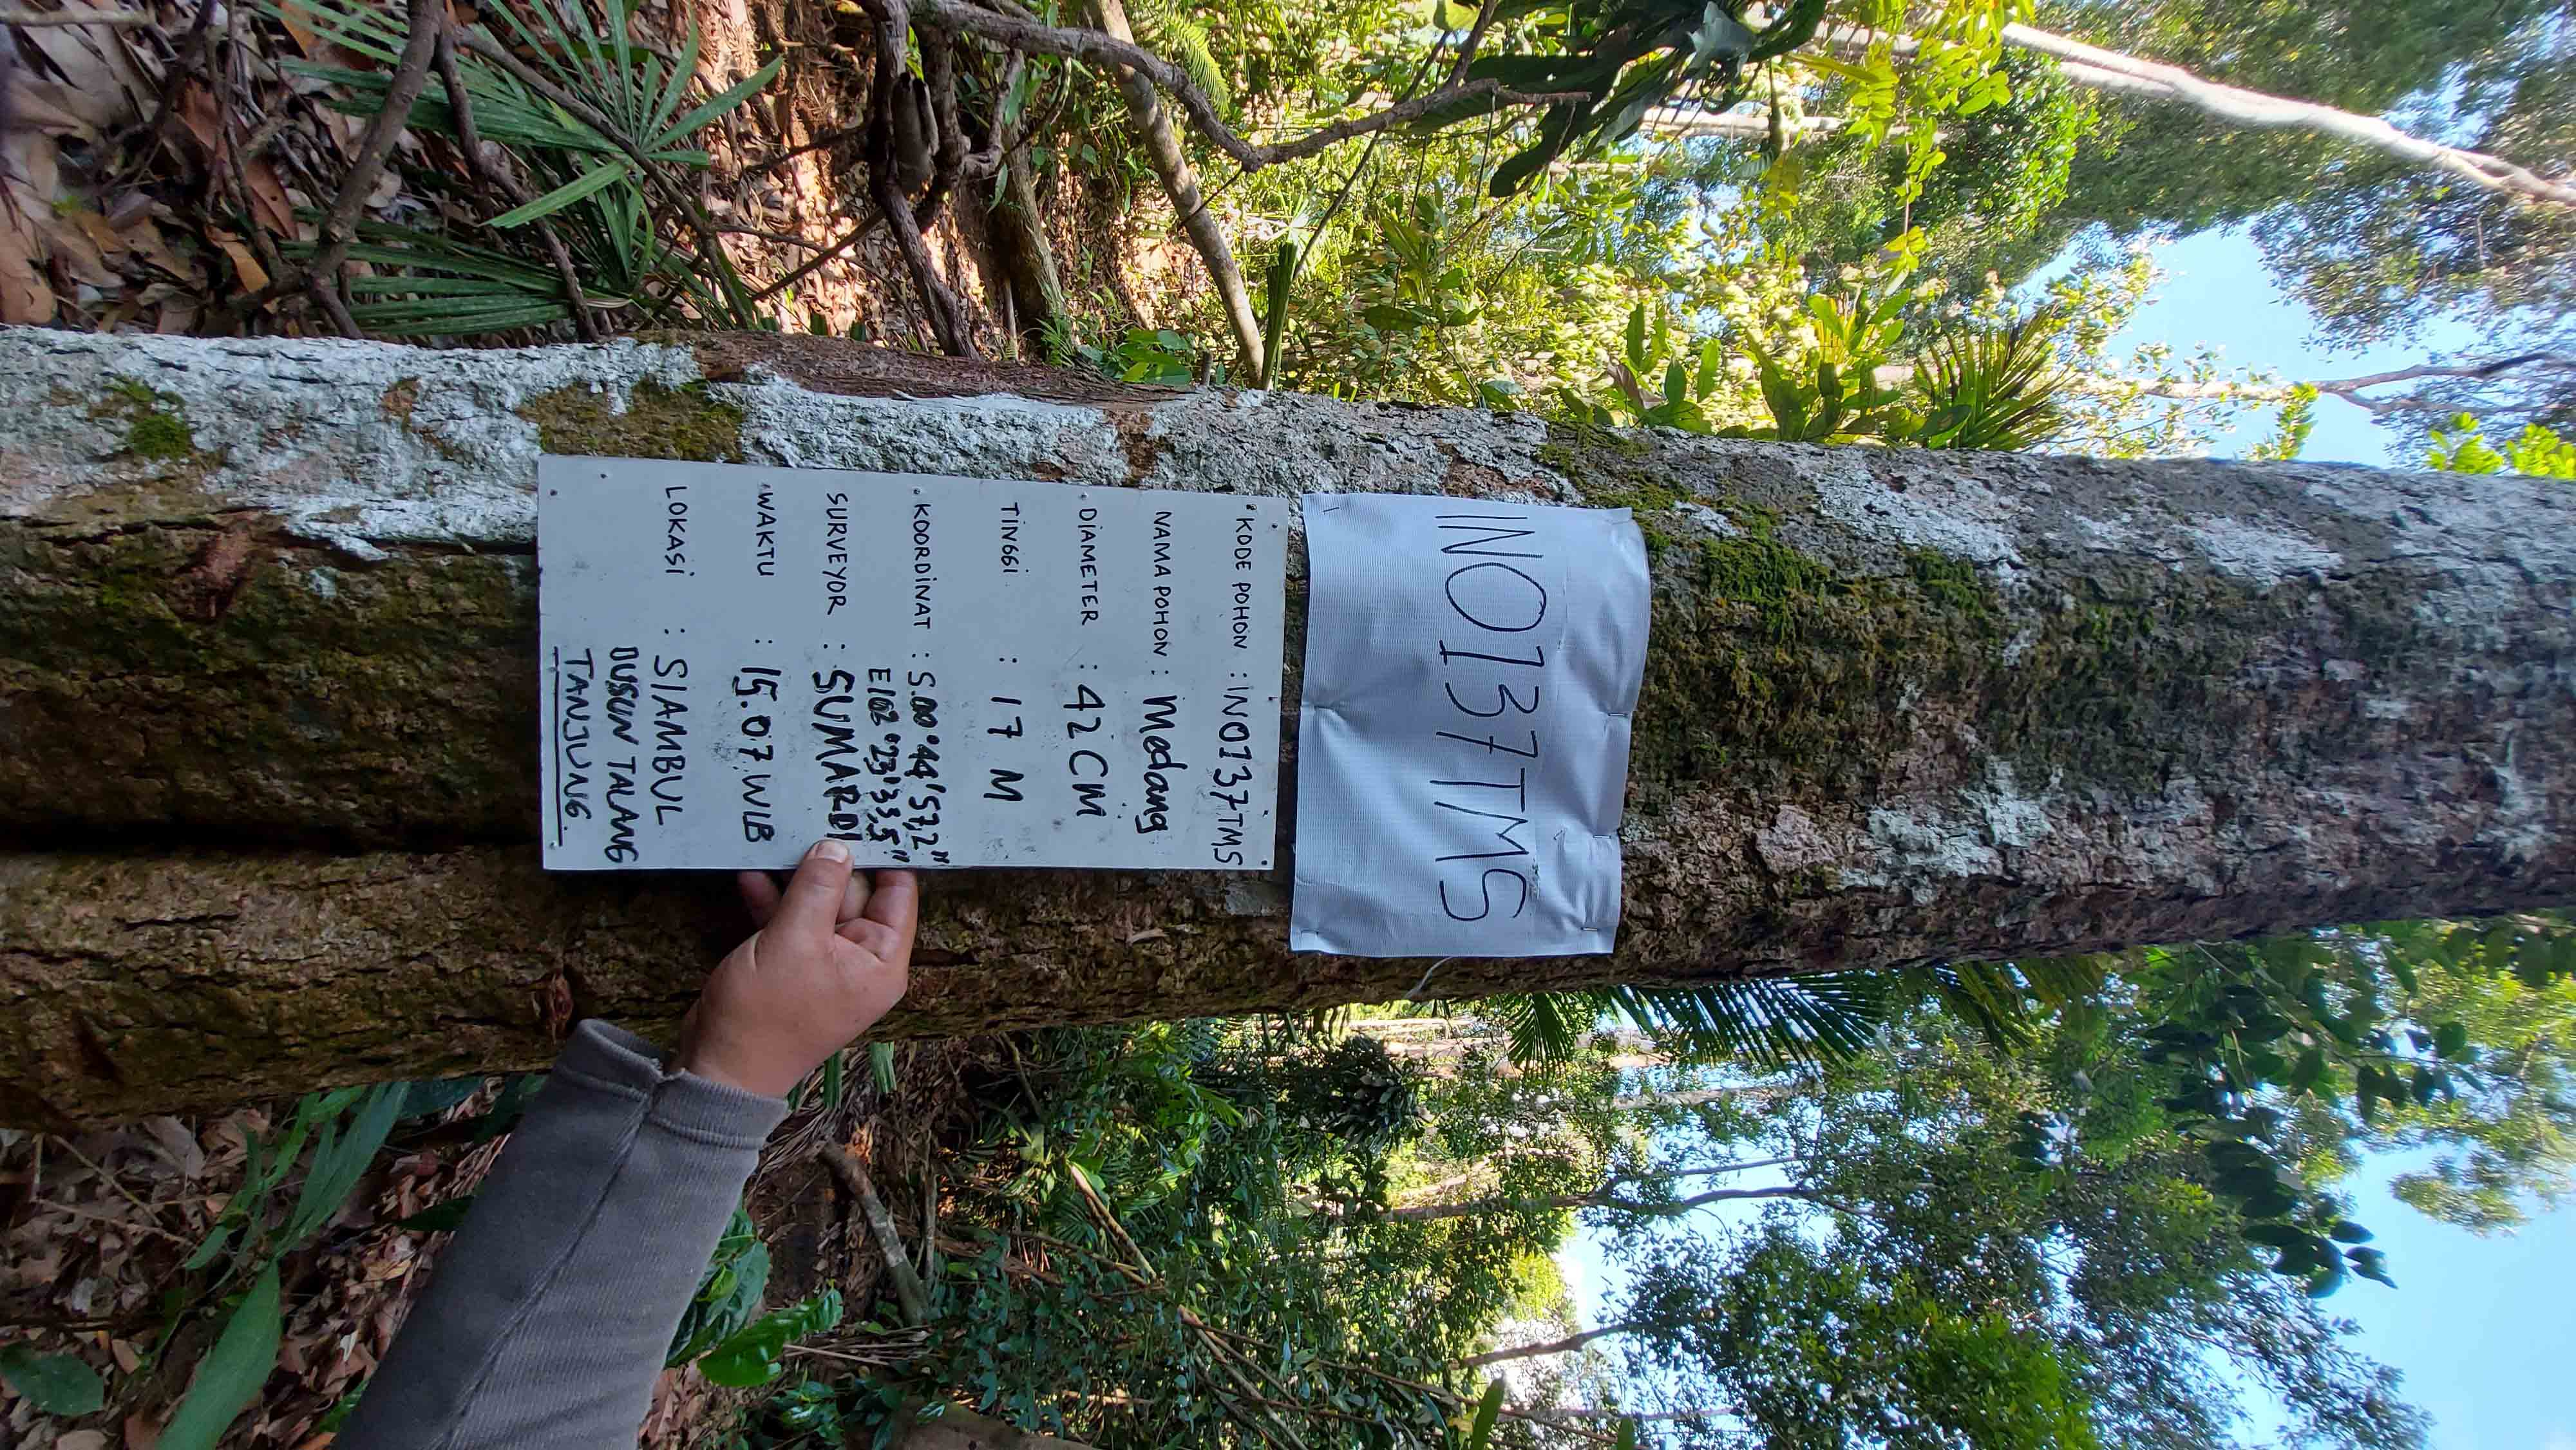 INO137TMS
KODE POHON : INO137TMS
NAMA POHON : Medang
DIAMETER : 42 CM
TINGGI : 17 M
KOORDINAT : S.00°44'57,2"
E102°23'33,5"
SURVEYOR : SUMARDI
WAKTU : 15.07.WIB
LOKASI : SIAMBUL
DUSUN TALANG
TANJUNG.